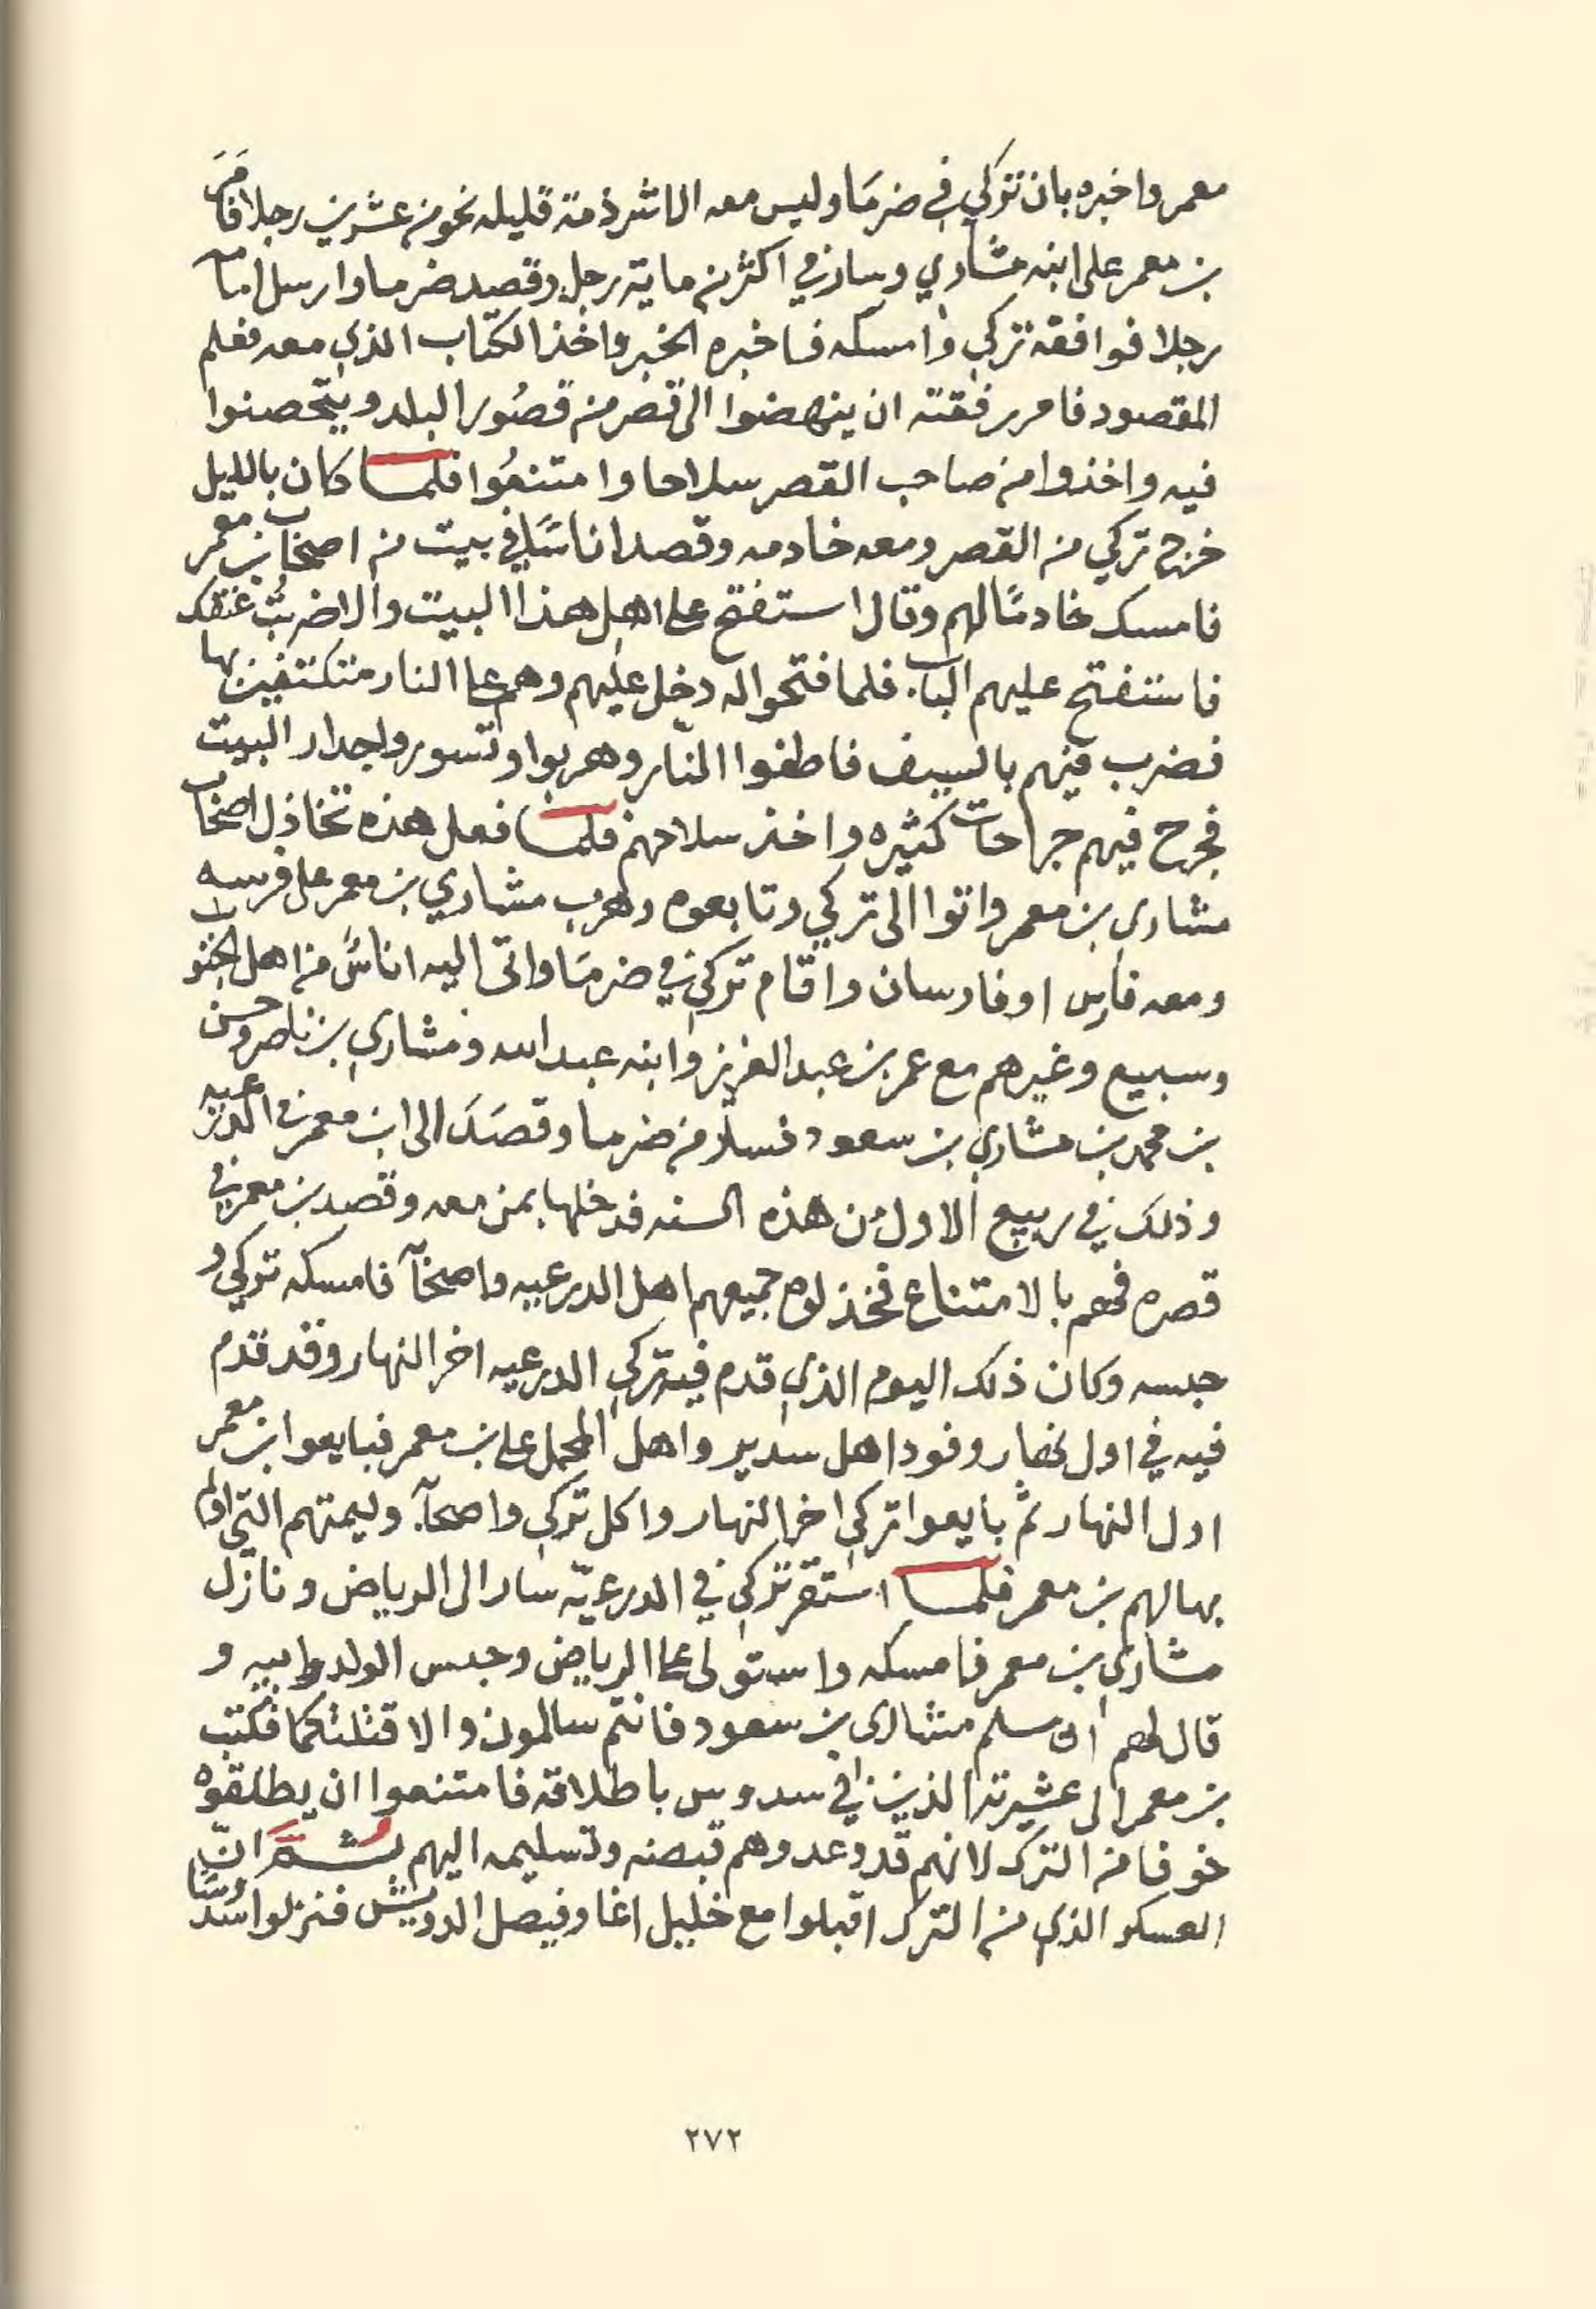 معمر واخبره بان تركي في ضرمَا وليس معه الا شرذمة قليله نحو من عشرين رجلا فامَرَ
بن معمر على ابنه مشاري وسار في اكثر من ماية رجل وقصد ضرما وارسل امامه
رجلا فوافقه تركي وامسكه فاخبره الخبر واخذ الكتاب الذي معه فعلم
المقصود فامر رفقته ان ينهضوا الى قصر من قصُور البلد ويتحصنوا
فيه واخذوا من صاحب القصر سلاحا وامتنعُوا فلما كان بالليل
خرج تركي من القصر ومعه خادمه وقصد اناسًا في بيت من اصحاب بن معمر
فامسك خادمًا لهم وقال استفتح على اهل هذا البيت والا ضربتُ عنقك
فاستفتح عليهم الباب. فلما فتحوا له دخل عليهم وهم على النار متكنفين بها
فضرب فيهم بالسيف فاطفوا النّار وهربوا وتسوروا جدار البيت
فجرح فيهم جراحات كثيره واخذ سلاحهم فلما فعل هذه تخاذل اصحاب
مشاري بن معمر واتوا الى تركي وتابعوه وهرب مشاري بن معمر على فرسه
ومعه فارس او فارسان واقام تركي في ضرمَا واتى اليه اناسٌ من اهل الجنوب
وسبيع وغيرهم مع عمر بن عبد العزيز وابنه عبد الله ومشاري بن ناصر وحسن
بن محمد بن مشاري بن سعود فسار من ضرما وقصَدَ الى ابن معمر في الدرعيه
وذلك في ربيع الاول من هذه السنه فدخلها بمن معه وقصد بن معمر في
قصره فهم بالامتناع فخذلوه جميعهم اهل الدرعيه واصحابه فامسكه تركي و
حبسه وكان ذلك اليوم الذي قدم فيه تركي الدرعيه اخر النهار وقد قدم
فيه في اول نهار وفود اهل سدير واهل المحمل على بن معمر فبايعوا بن معمر
اول النهار ثم بايعوا تركي اخر النهار واكل تركي واصحابه. وليمتهم التي اولم
بها لهم بن معمر فلما استقر تركي في الدرعيّه سار الى الرياض ونازل
مشاري بن معمر فامسكه واستولى على الرياض وحبس الولد وابيه و
قال لهم ان سلم مشاري بن سعود فانتم سالمون والا قتلتكما فكتب
بن معمر الى عشيرته الذين في سدوس باطلاقه فامتنعوا ان يطلقوه
خوفا من الترك لانهم قد وعدوهم قبضه وتسليمه اليهم ثُمَّ انّ
العسكر الذي من الترك اقبلوا مع خليل اغا وفيصل الدويش فنزلوا سُدوسًا
٢٧٢